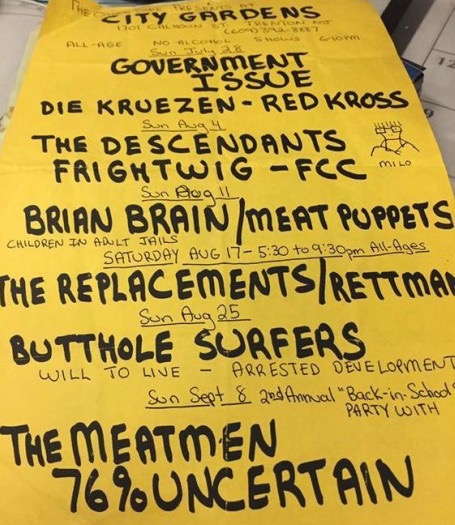 THE
PRESENTS AT
CITY GARDENS
1701 CALHOUN ST TRENTON NJ
(609) 392-8887
ALL-AGE NO-ALCOHOL SHOWS 6-10PM
Sun July 28
GOVERNMENT
ISSUE
DIE KRUEZEN - RED KROSS
Sun Aug 4
THE DESCENDANTS
FRIGHTWIG - FCC
MILO
Sun Aug 11
BRIAN BRAIN/MEAT PUPPETS
CHILDREN IN ADULT JAILS
SATURDAY AUG 17 - 5:30 to 9:30pm All-Ages
THE REPLACEMENTS/RETTMAN
Sun Aug 25
BUTTHOLE SURFERS
WILL TO LIVE - ARRESTED DEVELOPMENT
Sun Sept 8 2nd Annual "Back-in-School"
PARTY WITH
THE MEATMEN
76% UNCERTAIN